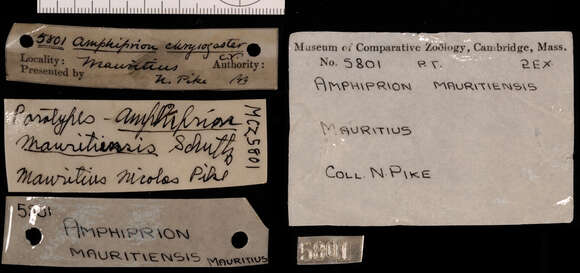 5801 Amphiprion chrysogaster
CV
Locality: Mauritius Authority:
Presented by N. Pike
Paratypes - Amphiprion
Mauritiensis Schultz
Mauritius Nicolas Pike
MCZ 5801
5801
AMPHIPRION
MAURITIENSIS MAURITIUS
Museum of Comparative Zoölogy, Cambridge, Mass.
No. 5801 P.T. 2 EX.
AMPHIPRION MAURITIENSIS
MAURITIUS
COLL. N. PIKE
5801